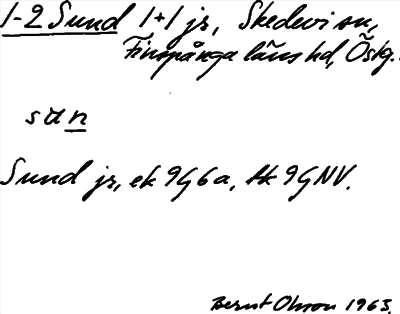 1-2 Sund 1+1 jr, Skedevi sn,
Finspånga läns hd, Östg.
sun
Sund jr, ek 9G6a, tk 9GNV.
Bernt Olsson 1963.